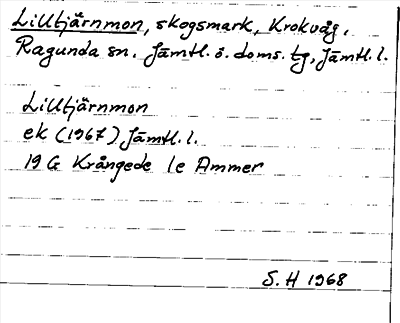 Lilltjärnmon, skogsmark, Krokvåg,
Ragunda sn. Jämtl. ö. doms. tg, Jämtl. l.
Lilltjärnmon
ek (1967) Jämtl. l.
19 G Krångede 1e Ammer
S. H 1968